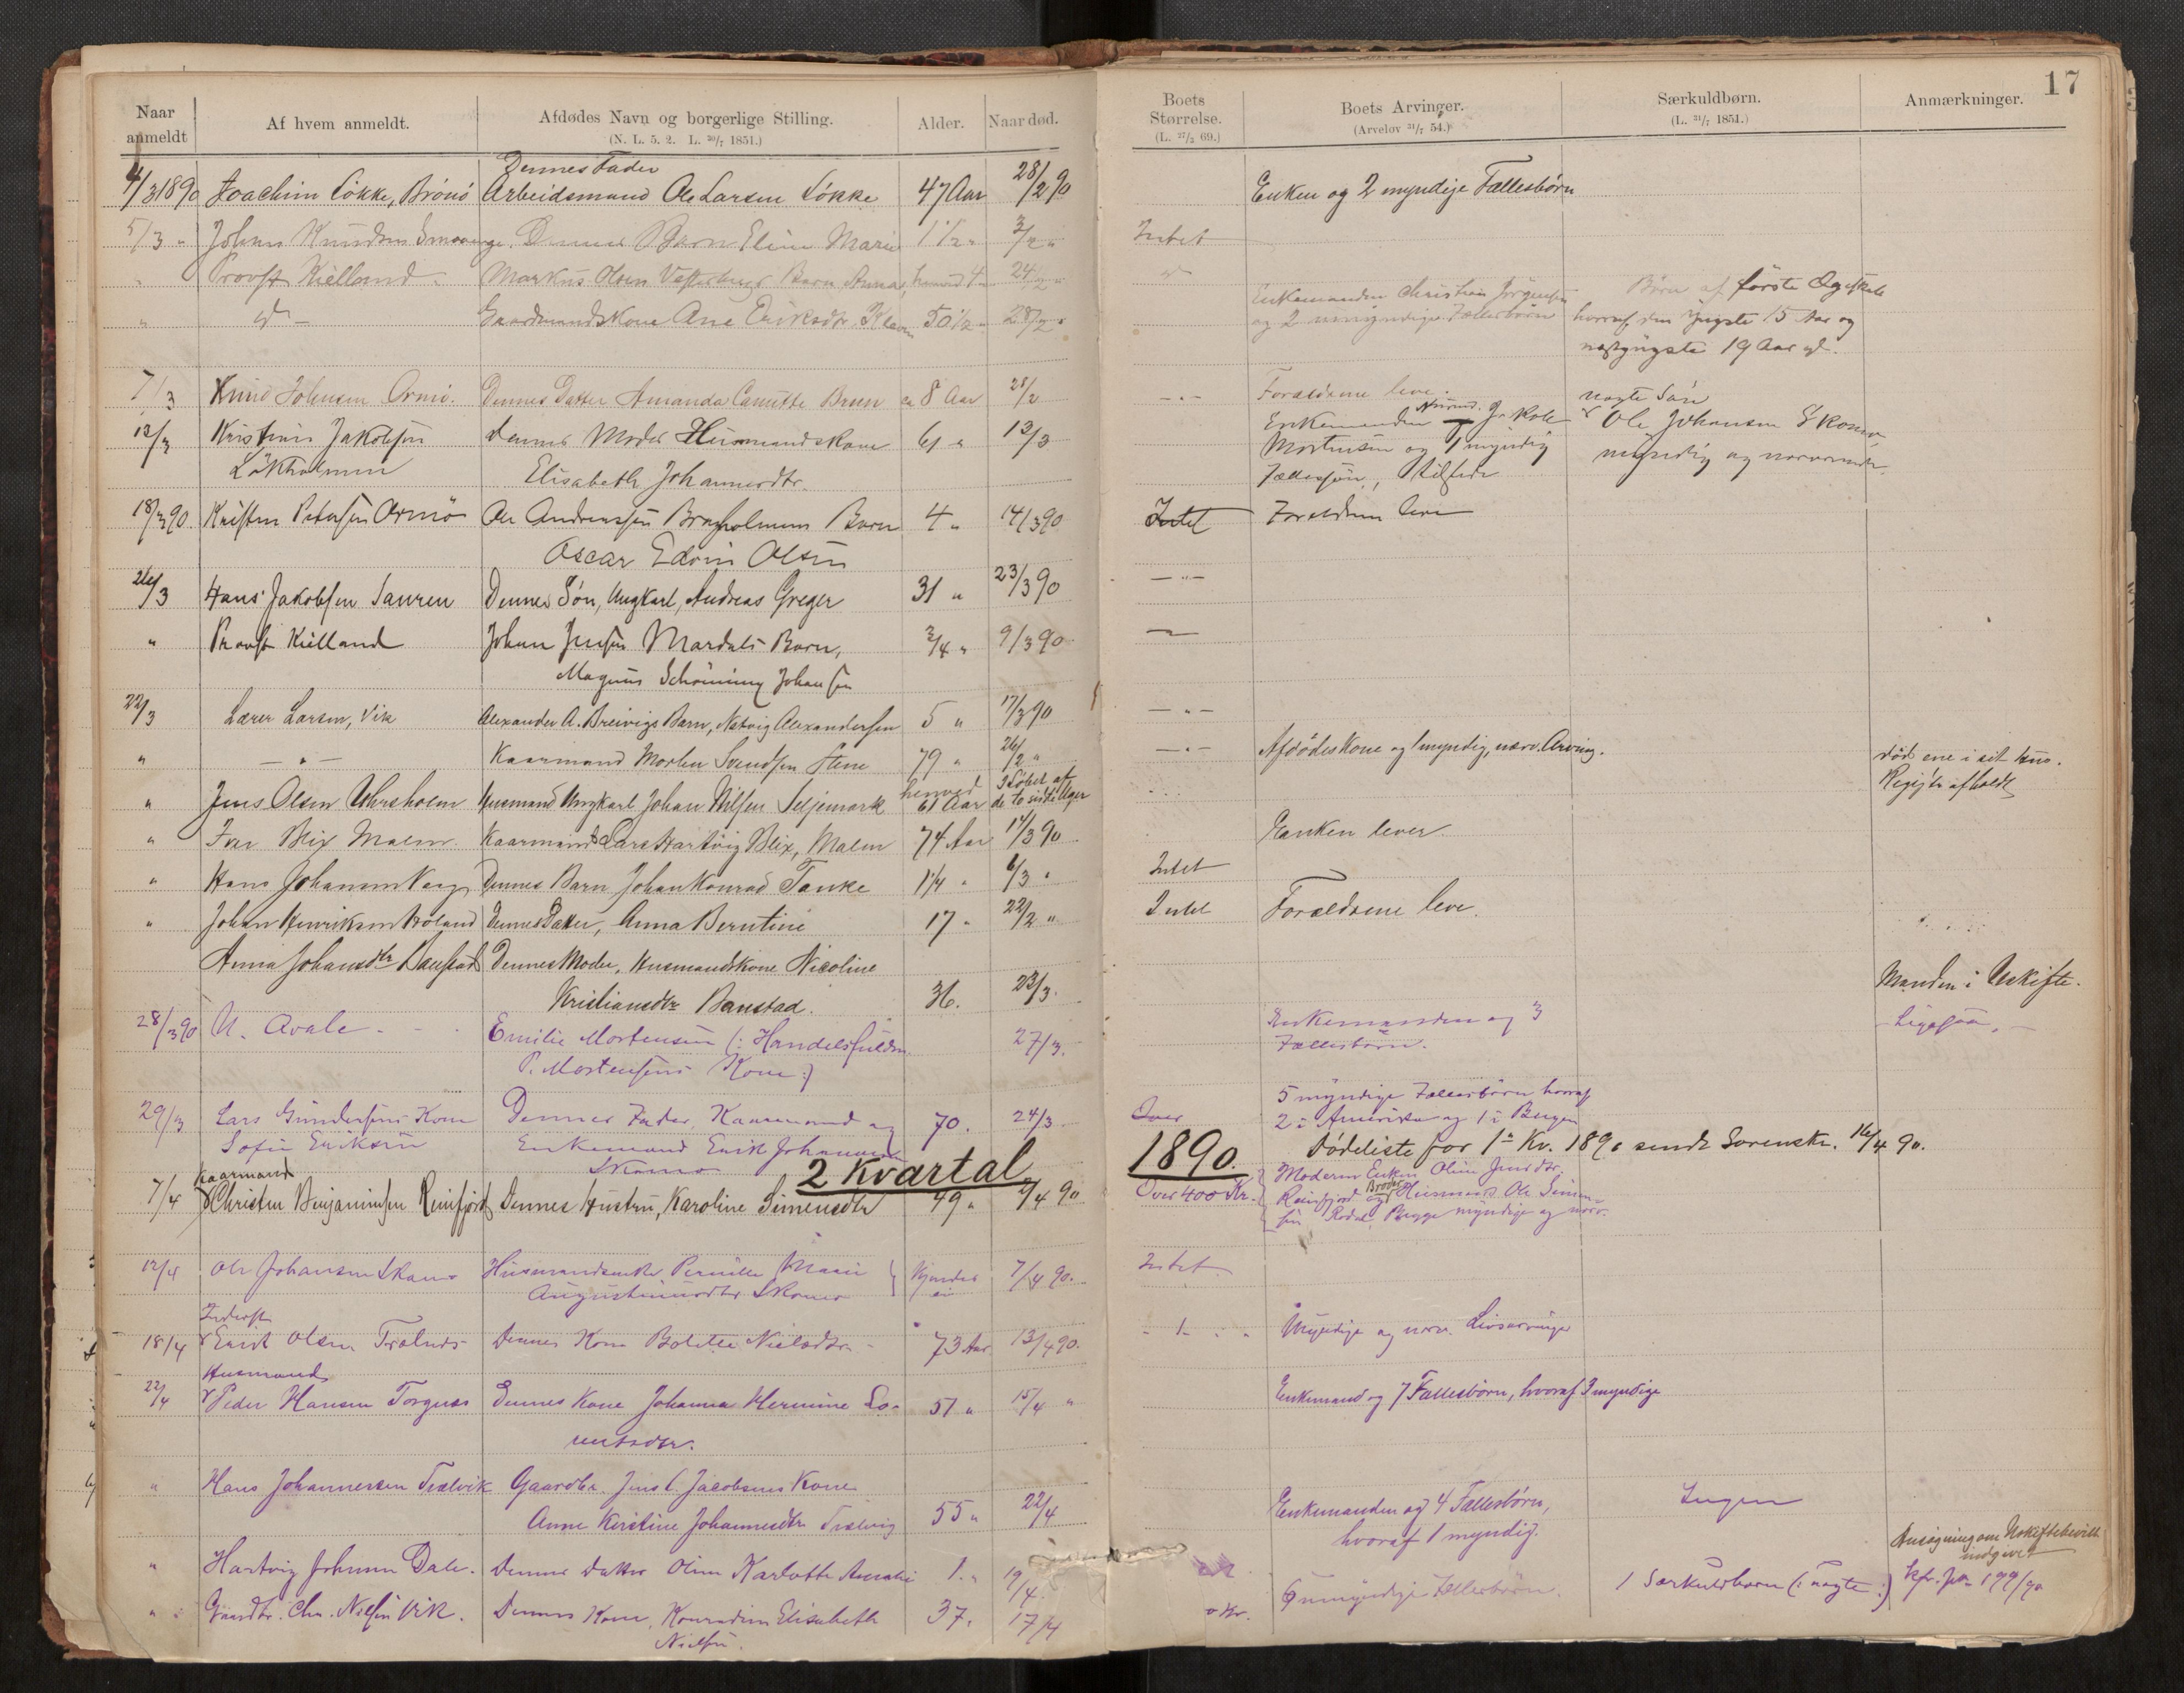 17
Naar anmeldt
Af hvem anmeldt.
Afdødes Navn og borgerlige Stilling.
(N. L. 5. 2. L. 20/7 1851.)
Alder.
Naar død.
Boets Størrelse.
(L. 27/3 69.)
Boets Arvinger.
(Arvelov 31/7 54.)
Særkuldbørn.
(L. 31/7 1851.)
Anmærkninger.
Dennes Fader
4/3 1890 Joachim Løkke, Brønø Arbeidsmand Ole Larsen Løkke 47 Aar 28/2 90 Enken og 2 myndige Fællesbørn
5/3 " Johan Knudsen Dennes Barn Eline Marie 1 1/2 " Intet
" Provst Kielland Markus Olsen Barn Anna, 4 " 24/2 "
" Gaardmandskone Ane Eriksdtr. 50 1/2 " 28/2 " Enkemanden Christian Jørgensen Børn af første Ægteskab
og 2 umyndige Fællesbørn hvoraf den yngste 15 Aar og
næstyngste 19 Aar gl.
7/3 Knud Johnsen Ormø. Dennes Datter Amanda Camitte Brun ca 8 Aar 28/2 - " - Forældrene leve. uægte Søn
12/3 Kristian Jakobsen Dennes Moder Husmandskone 61 " 12/3 Enkemanden Jakob Ole Johansen Skomo,
Løkholmen Elisabeth Johannesdtr. Mortensen og 1 myndig myndig og nærværende.
Fællessøn, tilstede
18/3 90 Kristen Petersen Ormø Ole Andreassen Bragholmens Barn 4 " 14/3 90 Intet Forældrene leve
Oscar Edvin Olsen
26/3 Hans Jakobsen Sauren Dennes Søn, Ungkarl, Andreas Greger 31 " 23/3 90 - " -
" Provst Kielland Johan Jensen Mardals Barn, 3/4 " 9/3 90
Magnus Schønning Johansen
22/3 Lærer Larsen, Vik Alexander A. Breivigs Barn, Nelvig Alexandersen 5 " 17/3 90 - " -
" - " - Kaarmand Morten Svendsen Stene 79 " 26/2 " - " - Afdødes Kone og 1 myndig, nærv. Arving.
død ene i sit hus.
" Jens Olsen Uhrsholm Husmand Ungkarl Johan Nilsen Seljemark henved 61 Aar I Løbet af de to sidste Uger Registr. afholdt
" Ivar Blix Malm Kaarmand Lars Hartvig Blix, Malm 74 Aar 14/3 90 Enken lever.
" Hans Johansen Vaag Dennes Barn Johan Konrad Tanke 1 1/4 " 6/3 " Intet
" Johan Henriksen Moland Dennes Datter, Anna Berntine 17 " 22/2 " Intet Forældrene leve.
Anna Johansdtr Banstad Dennes Moder, Husmandskone Nicoline
Kristiansdtr Banstad. 36. 23/3. Manden i Uskifte.
28/3 90 N. Qvale Emilie Mortensen (: Handelsfuldm. 27/3. Enkemanden og 3 Ligesaa.
P. Mortensens Kone :) Fællesbørn.
29/3 Lars Gundersens Kone Dennes Fader, Kaarmand og 70. 24/3 Over 5 myndige Fællesbørn hvoraf
Sofie Eriksen Enkemand Erik Johansen 2 i Amerika og 1 i Bergen
Skomo
Dødeliste for 1ste Kv. 1890 sendt Sorenskr. 16/4 90.
2 Kvartal 1890.
Kaarmand
7/4 Christen Benjaminsen Reinfjord Dennes Hustru, Karoline Simensdtr 49 " 2/4 90 Over 400 Kr. Moderen Enken Oline Jensdtr.
Reinfjord og Broder Husmand Ole Simensen
Rodal. Begge myndige og nærv.
12/4 Ole Johansen Skomo Husmandsenke Pernille Marie Kjendes ei 7/4 90. Intet
Augustinusdtr Skomo
Inderst
18/4 Erik Olsen Trælnes Dennes Kone Bolette Nielsdtr. 73 Aar 13/4 90. Myndige og nærv. Livsarvinger
Husmand
22/4 Peder Hansen Torgnes Dennes Kone Johanna Hermine Lo- 51 " 15/4 " Enkemand og 7 Fællesbørn, hvoraf 3 myndige
rentsdtr.
" Hans Johannessen Trælvik Gaardbr. Jens C. Jacobsens Kone
Anne Kirstine Johannesdtr Trælvig 55 " 22/4 Enkemanden og 4 Fællesbørn, Ingen
hvoraf 1 myndig.
Ansøgning om Uskiftebevill. indgivet
" Hartvig Johnsen Dale. Dennes Datter Oline Karlotte Amalie 1. " 19/4.
" Gaardbr. Chr. Nielsen Vik. Dennes Kone, Konradine Elisabeth 37. 17/4 0 Kr. 6 umyndige Fællesbørn. 1 Særkuldbarn (: uægte :) kfr. 199/90
Nielsen.